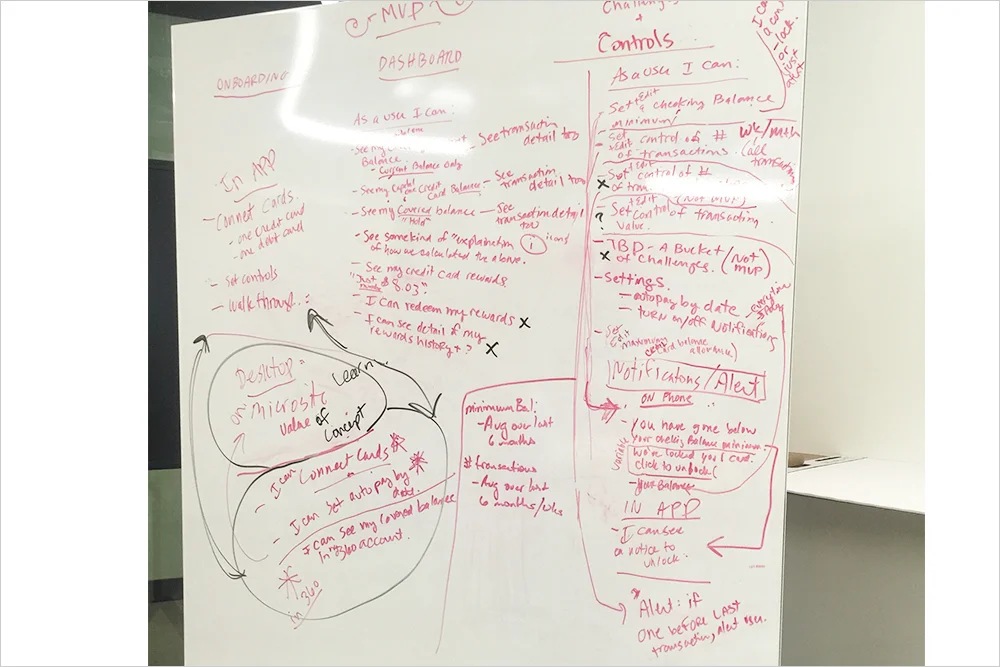 MVP
ONBOARDING
In APP
- Connet Cards.
- one credit card
- one debt card
- Set controls
- Walk through...
Desktop
or Microsite
Learn.
value of
Concept
- I can Connect Cards
- I can Set autopay by
date.
- I can see my covered balance
in my 360 account.
in 360
DASHBOARD
As a use I can:
- See my
Balance
- Current Balance only
- See transactin
detail too
- See my Capital one Credit
Card Balance
- See
transaction
detail too
- See my Covered balance
"Hold"
- See
transaction detail
too
- See some kind of "explination
of how we calculated the above.
i icons
- See my credit card rewards
"Just a
number $ 8.03"
- I can redeem my rewards X
- I can see detail of my
rewards history + ? X
minimum Bal:
- Avg over last
6 months
# transactions
- Avg over last
6 months/wks
Challenges
+
Controls
As a use I can:
- Set + Edit a checking Balance
minimum
- Set
+ Edit control of # wk/mth
of transactions. (all
transactions
- Set + Edit control of #
X of tran
(Not MVP)
? - Set + Edit Control of transacting
value.
- TBD - A Bucket (Not
MVP)
X of challenges.
- Settings.
- autopay by date
- TURN on/off Notifications
- Set
Edit
Maximum
credit card balance
allowance)
Notifications/Alert
ON Phone
- You have gone below
your checking Balance minimum.
variable
we've locked your card.
click to unlock
- your Balance
IN APP
- I can see
a notice to
unlock.
* Alert: if
one before LAST
transactin, alert user.
I c
a con
- lock.
- or
just
alert